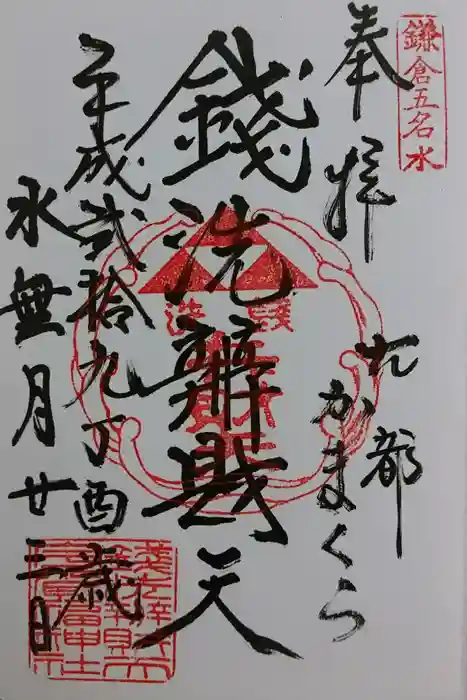 鎌倉五名水
奉拝
古都
かまくら
錢洗辨財天
平成弐拾九丁酉歳
水無月廿三日